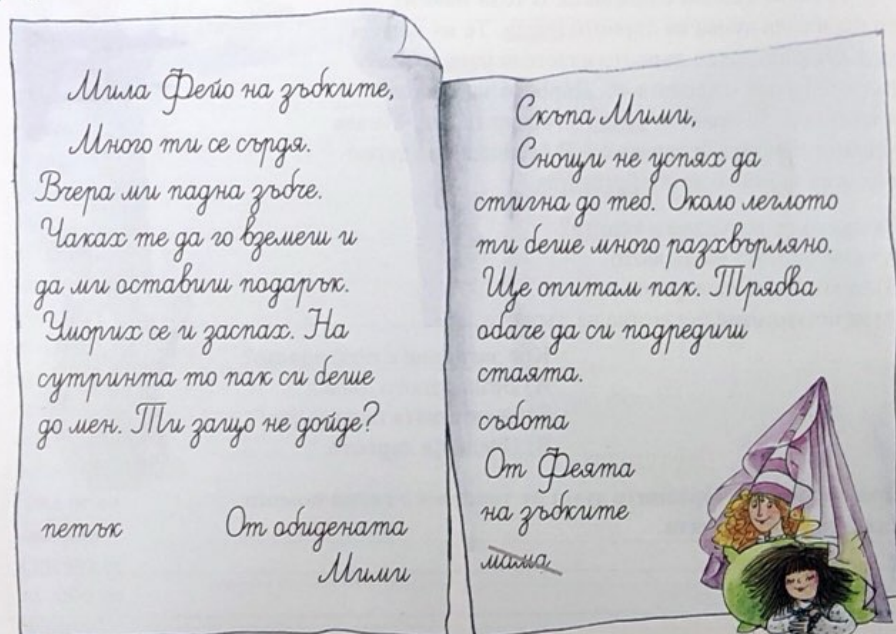 Мила Фейо на зъбките,
Много ти се сърдя.
Вчера ми падна зъбче.
Чаках те да го вземеш и
да ми оставиш подарък.
Уморих се и заспах. На
сутринта то пак си беше
до мен. Ти защо не дойде?
петък От обидената
Мими
Скъпа Мими,
Снощи не успях да
стигна до теб. Около леглото
ти беше много разхвърляно.
Ще опитам пак. Трябва
обаче да си подредиш
стаята.
събота
От Феята
на зъбките
мама